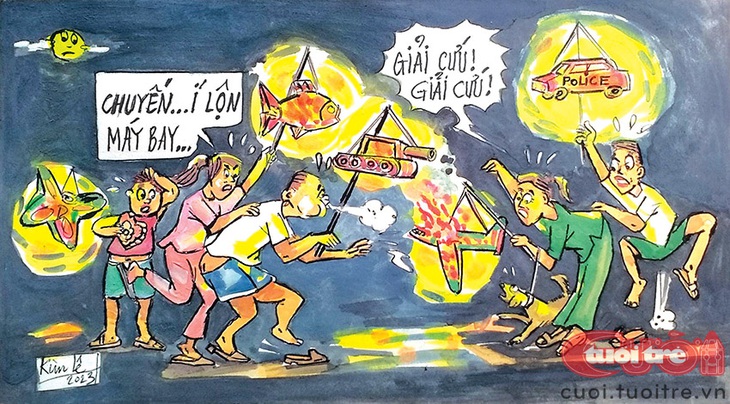 CHUYẾN...Í LỘN
MÁY BAY...
GIẢI CỨU!
GIẢI CỨU!
POLICE
Kim lê
2023
tuoi tre
cuoi.tuoitre.vn